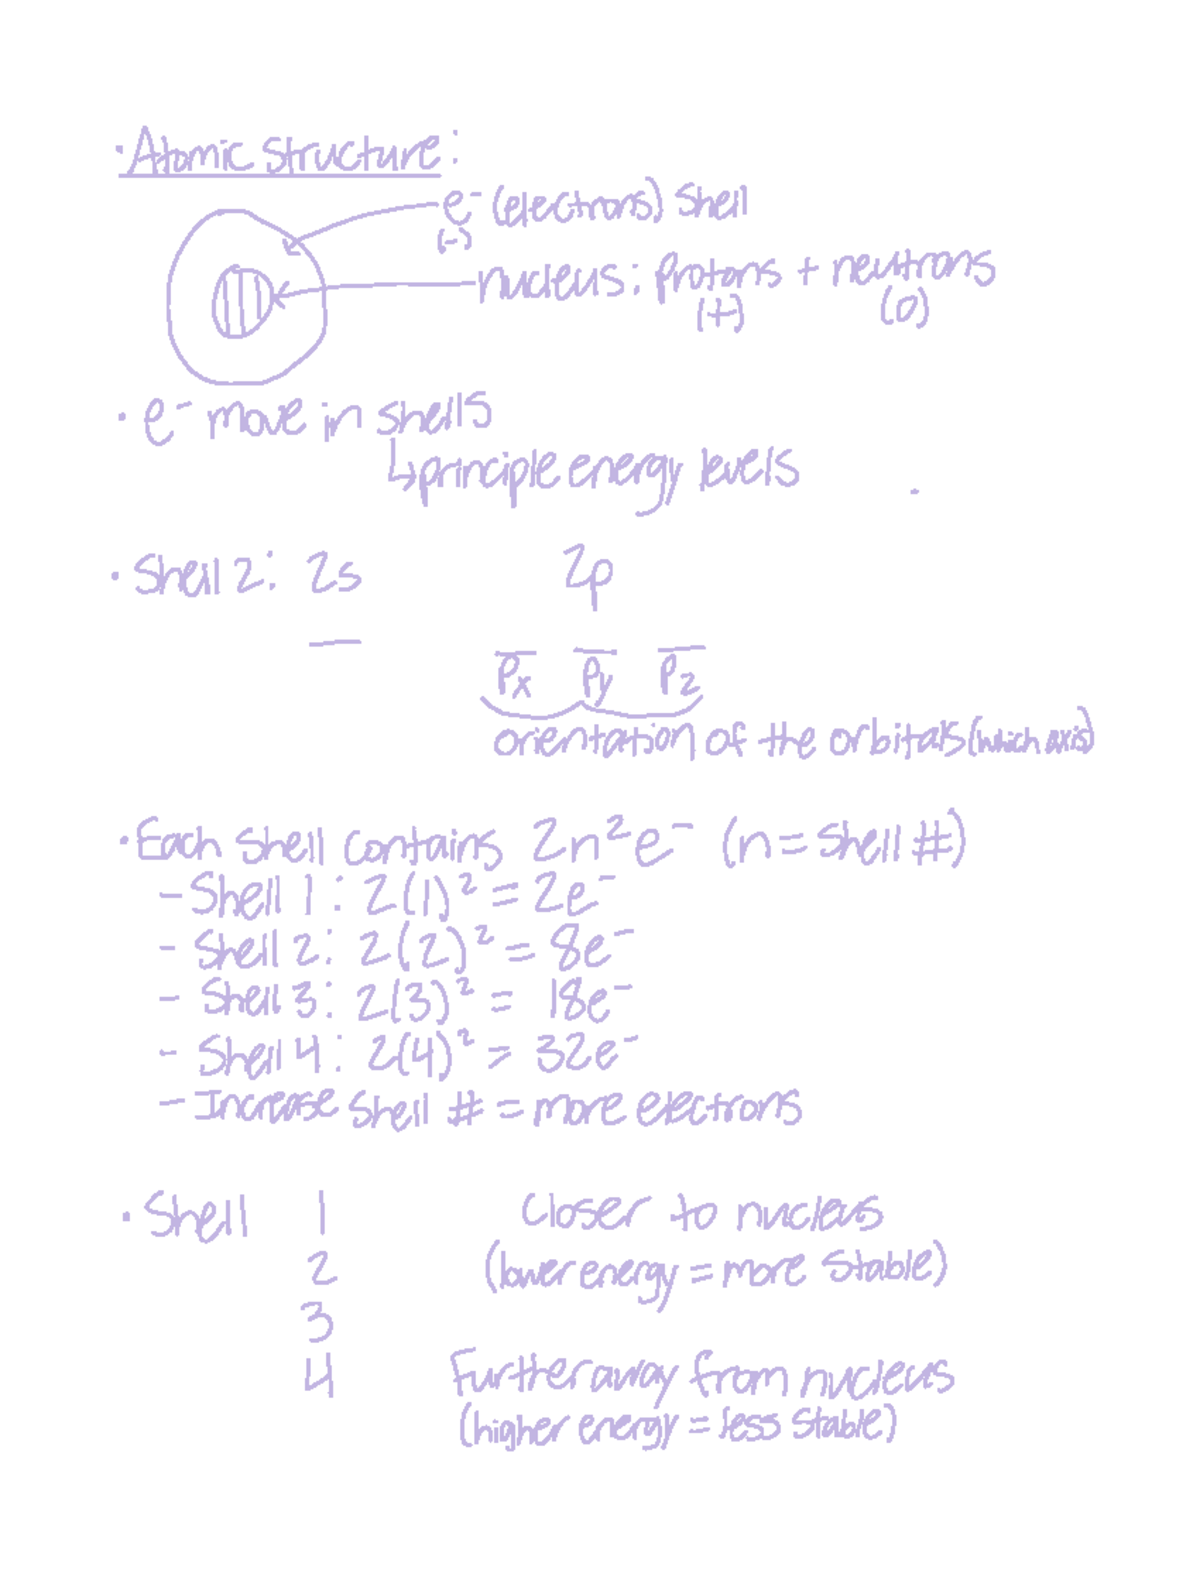 · Atomic Structure:
e⁻ (electrons) Shell
(-)
nucleus: protons + neutrons
(+) (0)
· e⁻ move in shells
↳ principle energy levels
· Shell 2: 2s 2p
Px Py Pz
orientation of the orbitals (which axis)
· Each Shell contains 2n²e⁻ (n = Shell #)
- Shell 1: 2(1)² = 2e⁻
- Shell 2: 2(2)² = 8e⁻
- Shell 3: 2(3)² = 18e⁻
- Shell 4: 2(4)² = 32e⁻
- Increase Shell # = more electrons
· Shell 1 Closer to nucleus
2 (lower energy = more Stable)
3
4 Further away from nucleus
(higher energy = less Stable)